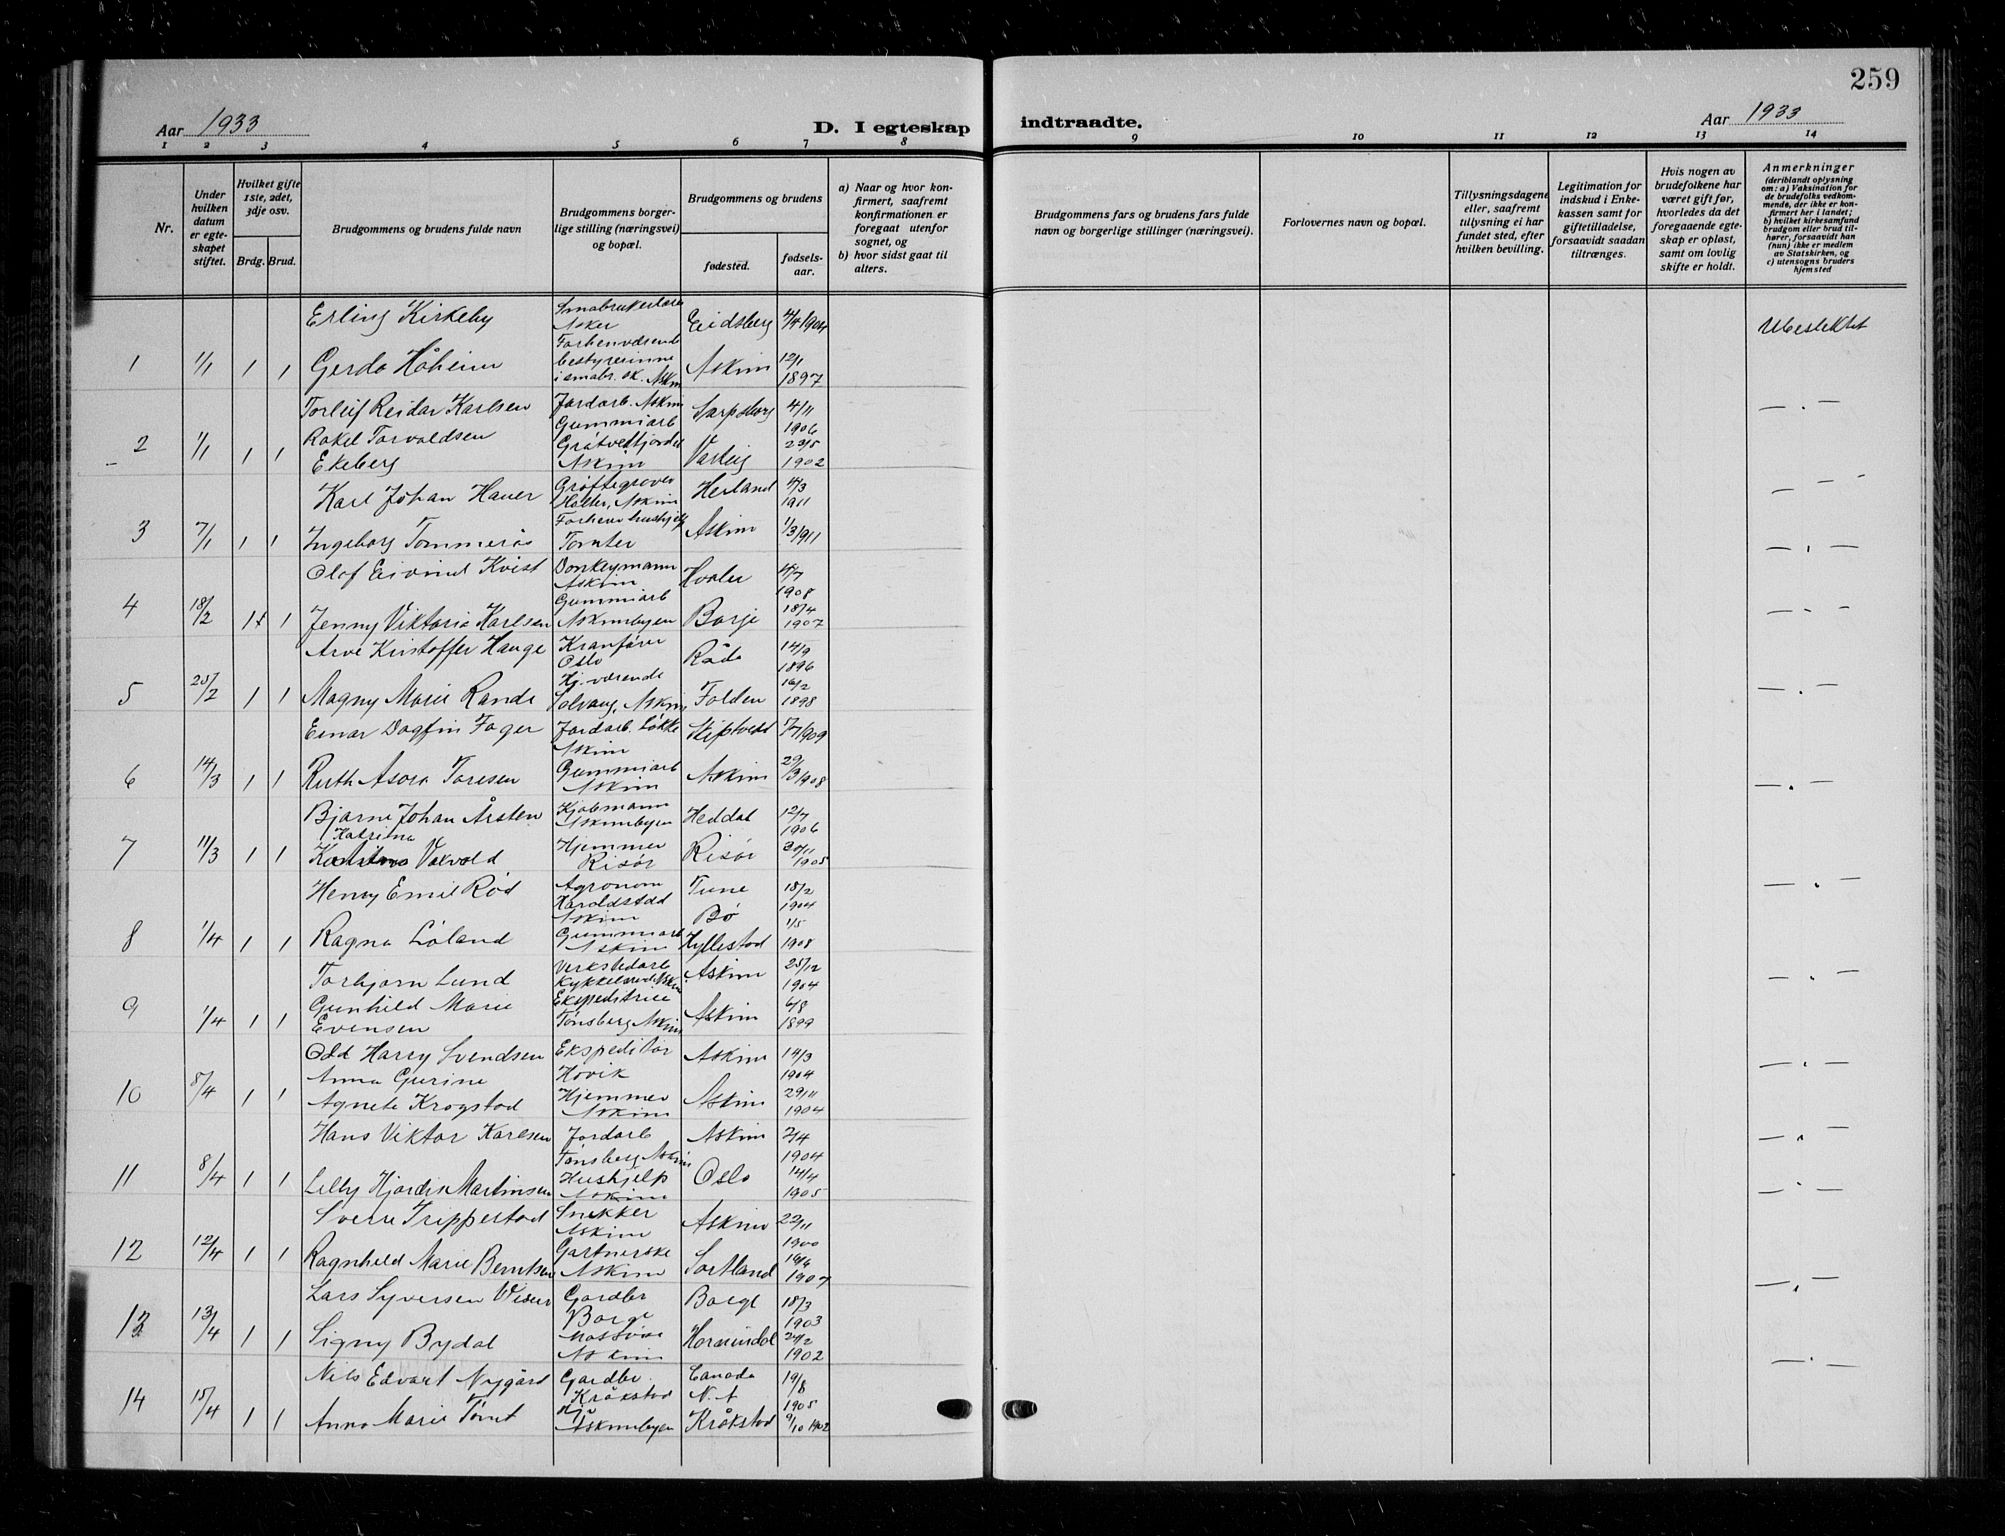 259
Aar 1933
D. I egteskap indtraadte.
Aar 1933
1 2 3 4 5 6 7 8 9 10 11 12 13 14
Nr.
Under hvilken datum er egteskapet stiftet.
Hvilket gifte 1ste, 2det, 3dje osv.
Brdg. Brud.
Brudgommens og brudens fulde navn
Brudgommens borgerlige stilling (næringsvei) og bopæl.
Brudgommens og brudens
fødested. fødselsaar.
a) Naar og hvor konfirmert, saafremt konfirmationen er foregaat utenfor sognet, og
b) hvor sidst gaat til alters.
Brudgommens fars og brudens fars fulde navn og borgerlige stillinger (næringsvei).
Forlovernes navn og bopæl.
Tillysningsdagene eller, saafremt tillysning ei har fundet sted, efter hvilken bevilling.
Legitimation for indskud i Enkekassen samt for giftetilladelse, forsaavidt saadan tiltrænges.
Hvis nogen av brudefolkene har været gift før, hvorledes da det foregaaende egteskap er opløst, samt om lovlig skifte er holdt.
Anmerkninger
(deriblandt oplysning om: a) Vaksination for de brudefolks vedkommende, der ikke er konfirmert her i landet; b) hvilket kirkesamfund brudgom eller brud tilhører, forsaavidt han (hun) ikke er medlem av Statskirken, og c) utensogns bruders hjemsted
Erling Kirkeby Småbrukerlærer Asker Eidsberg 4/4 1904 Ubeslektet
1 1/1 1 1 Gerda Håheim Forhenværende bestyrerinne i småbr. sk. Askim Askim 12/1 1897
Torleif Reidar Karlsen Jordarb. Askim Sarpsborg 4/11 1906 — . —
2 1/1 1 1 Rakel Torvaldsen Ekeberg Gummiarb Askim Varteig 23/5 1902
Karl Johan Hauer Grøftegraver Holter, Askim Herland 4/3 1911 — . —
3 7/1 1 1 Ingeborg Tommerås Tomter Askim 1/3 1911
Olof Eivind Kvist Donkeymann Askim Hvaler 4/7 1908 — . —
4 18/2 1 1 Jenny Viktoria Karlsen Gummiarb Askimbyen Borge 18/4 1907 — . —
Arve Kristoffer Hauge Kranfører Oslo Råde 14/9 1896
5 25/2 1 1 Magny Marie Rande Hj.værende Solvang, Askim Folden 16/2 1898 — . —
Einar Dagfin Fager Jordarb. Løkke Askim Skiptvedt 1/7 1909
6 14/3 1 1 Ruth Asora Toresen Gummiarb Askim Askim 29/3 1908 — . —
Bjarne Johan Årsten Askimbyen Heddal 12/7 1906
7 11/3 1 1 Katrine Vakvold Hjemmev Risør Risør 30/11 1905
Henry Emil Rød Agronom Haraldstad Askim Tune 18/2 1904 — . —
8 1/4 1 1 Ragna Løland Gummiarb Askim Bø Hyllestad 1/5 1908
Torbjørn Lund Verkstedarb Kykkelsrud Askim Askim 25/12 1904 — . —
9 1/4 1 1 Gunhild Marie Evensen Ekspeditrice Tønsberg Askim Askim 6/8 1899
Odd Harry Svendsen Ekspeditør Høvik Askim 14/3 1904 — . —
10 8/4 1 1 Anna Gurine Agnete Krogstad Hjemmev Askim Askim 29/11 1904
Hans Viktor Karlsen Jordarb Tønsberg Askim Askim 2/4 1904 — . —
11 8/4 1 1 Lilly Hjørdis Martinsen Hushjelp Askim Oslo 14/4 1905 — . —
Sverre Trippestad Snekker Askim Askim 22/11 1900
12 12/4 1 1 Ragnhild Marie Berntsen Gartnerske Askim Sortland 16/6 1907
Lars Syversen Gardbr Borge Borge 18/3 1903 — . —
13 13/4 1 1 Signy Bydal Massøse Askim Hornindal 24/2 1902
Nils Edvart Nygård Gardbr. Kråkstad Canada N.A 19/8 1905 — . —
14 15/4 1 1 Anna Marie Tomt Hj Askimbyen Kråkstad 9/10 1902